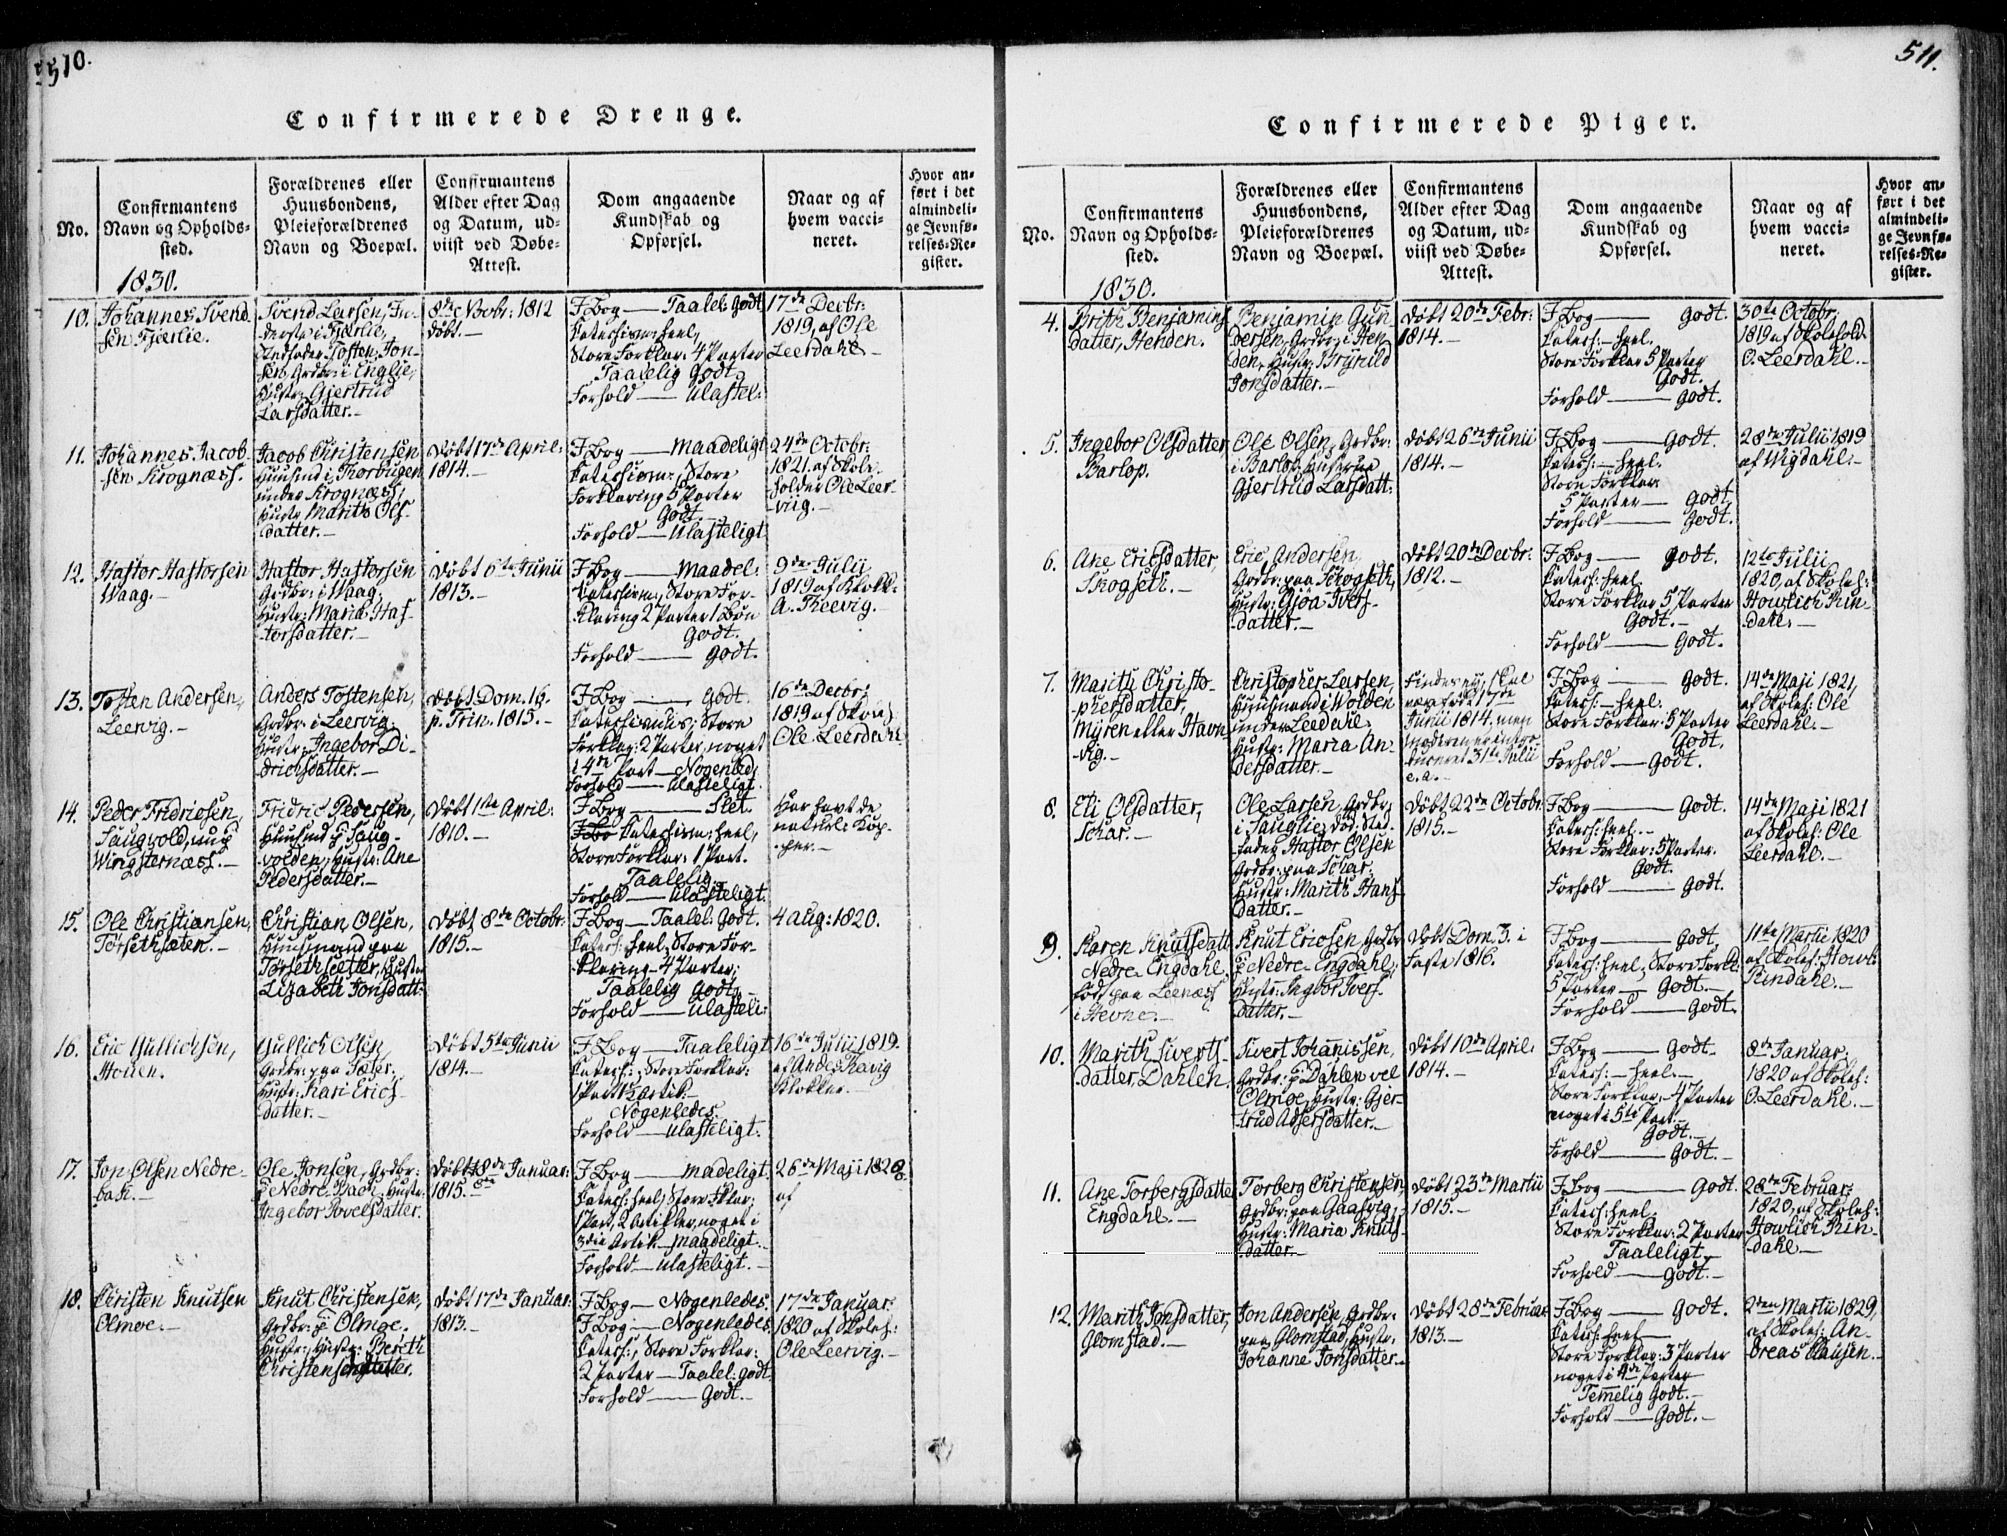 510.
Confirmerede Drenge.
No.
Confirmantens
Navn og Opholds-
sted.
Forældrenes eller
Huusbondens,
Pleieforældrenes
Navn og Boepæl.
Confirmantens
Alder efter Dag
og Datum, ud-
viist ved Døbe-
Attest.
Dom angaaende
Kundskab og
Opførsel.
Naar og af
hvem vacci-
neret.
Hvor an-
ført i det
almindeli-
ge Jevnfø-
relses-Re-
gister.
1830.
10.
Johannes Svend
sen Fjærlie.
Svend Larsen, In-
derste i Fjærlie,
Stedfader Tosten Jon-
sen Grdbr: i Englie,
Hustr: Gjertrud
Larsdatter.-
8de Novbr: 1812
døbt.-
I Bog - Taalel: Godt
Catechism: heel,
Store Forklar: 4 Parter
Taalelig Godt.
Forhold - Ulastel:
17de Decbr:
1819, af Ole
Leerdahl.-
11.
Johannes Jacob
sen Krognæss.
Jacob Christensen
Huusmd i
under Krognæss,
Hustr Marith Ols
datter.-
Døbt 17de April:
1814.-
I Bog - Maadeligt
Catechism: Store
Forklaring 5 Parter
Godt.
Forhold - Ulasteligt
24de Octobr:
1821. af Skole-
holder Ole Leer-
viig.-
12.
Haftor Haftorsen
Waag.-
Haftor Haftorsen
Grdbr: i Waag,
Hustr: Maria Haf-
torsdatter.-
Døbt 6te Junii
1813.-
I Bog - Maadel:
Catechism, Store For-
klaring 2 Parter 1 Bøn
Godt.
Forhold - Godt.
9de Julii
1819 af Klokk:
A. Theevig.-
13.
Tosten Andersen,
Leervig.-
Anders Tostensen,
Grdbr: i Leervig,
Hustr: Ingebor Di-
drichsdatter.-
Døbt Dom. 16.
p. Trin. 1815.-
I Bog - Godt.
Catechismus: Store
Forklar: 2 Parter, noget
i 4de Part - Nogenled:
Forhold - Ulasteligt.
16de Decbr:
1819 af Skoles:
Ole Leerdahl
14.
Peder Fridricsen,
Saugvold, nu paa
Fridric Pedersen,
Huusmd p: Saug-
volden, Hustr: Ane
Pedersdatter.-
Døbt 1ste April:
1810.-
I Bog - Slet.
Catechism: heel,
Store Forklar: 1 Part.
Taalelig.
Forhold - Ulasteligt.
Har havt de
naturl: Kop-
per.-
15.
Ole Christiansen,
Tørsethsæten.-
Christian Olsen,
Huusmand paa
Tørsethsetter, Hustr
Lizabeth Jonsdatt:
Døbt 8de Octobr:
1815.-
I Bog - Taalel: Godt.
Catech: heel, Store For-
klaring - 4 Parter;
Taalelig Godt.
Forhold - Ulasteli:
4 Aug: 1820.
16.
Eric Gullichsen,
Houen.
Gullich Olsen,
Grdbr: paa Sæter,
Hustr: Kari Erics
datter.-
Døbt 5te Junii
1814.-
I Bog - Taaleligt
Catech: Store Forklar:
1 Part 1 Artik:
Nogenledes.
Forhold - Ulasteligt.
16de Julii 1819.
af Andes Thævig
Klokker.-
17.
Jon Olsen Nedre-
bach.-
Ole Jonsen, Grdbr:
p: Nedre Bach, Hustr:
Ingebor Povelsdatter.
Døbt 8de Januar:
1815.
I Bog - Madeligt.
Catech: heel, Store Fklar:
1 Part, 2 Artikler, noget i
3die Artik - Maadeligt.
Forhold - Ulasteligt.-
26de Maji 1820
af
18.
Christen Knutsen
Olmøe.-
Knut Christensen,
Grdbr: p: Olmøe.
Hustr: Hustr: Bereth
Christensdatter.
Døbt 17de Januar:
1813.-
I Bog - Nogenledes.
I Bog - Nogenledes.
Catech:, Store Forklar:
2 Parter - Taalel. godt.
Forhold - Godt.-
17de Januar:
1820 af Skoles:
Ole Leervig.-
511.
Confirmerede Piger.
No.
Confirmantens
Navn og Opholds-
sted.
Forældrenes eller
Huusbondens,
Pleieforældrenes
Navn og Boepæl.
Confirmantens
Alder efter Dag
og Datum, ud-
viist ved Døbe-
Attest.
Dom angaaende
Kundskab og
Opførsel.
Naar og af
hvem vacci-
neret.
Hvor an-
ført i det
almindeli-
ge Jevnfø-
relses-Re-
gister.
1830.
4.
Brith Benjamins
datter, Henden.
Benjamin Gun
dersen, Grdbr: i Hen
den, Hustr: Brynild
Jonsdatter.-
Døbt 20de Febr:
1814.-
I Bog - Godt.
Catech: - heel.
Store Forklar 5 Parter
Godt.
Forhold - Godt.
30te Octobr:
1819 af Skolehold
O. Leerdahl.-
5.
Ingebor Olsdatter
Barlop.
Ole Olsen, Grdbr:
i Barlop, Hustrue
Gjertrud Larsdatt:
Døbt 26de Junii
1814.-
I Bog - Godt.
Catech: - heel.
Store Forklar
5 Parter - Godt.
Forhold - Godt.
28de Julii 1819
af Wigdahl.-
6.
Ane Ericsdatter,
Skogseth.-
Eric Andersen
Grdbr: paa Skogseth,
Hustr: Gjøa Ivers-
datter.-
Døbt 20de Decbr:
1812.-
I Bog - Godt.
Catech: heel.
Store Forklar 5 Parter
Godt.-
Forhold - Godt.
12te Julii
1820, af Skoles:
Howlich Rin-
dahl.-
7.
Marith Christo-
phersdatter,
Myren eller Havn
vig.-
Christopher Larsen,
Huusmand i Wolden
under Leedahl.
Hustr: Maria An-
dersdatter.-
Findes ej, skal
være født 17de
Junii 1814, men
Moderen er intro
duceret 31te Julii
e. a.-
I Bog - Godt.
Catech: - heel.
Store Forklar: 5 Parter
Godt.
Forhold - Godt.
14de Maji 1821,
af Skoles: Ole
Leerdahl.-
8.
Eli Olsdatter,
Schar.-
Ole Larsen, Grdbr:
i Sauglie, død: Sted-
fader Haftor Olsen
Grdbr: paa Schar,
Hustr: Marith Hans
datter.-
Døbt 22de Octobr
1815.-
I Bog - Godt.
Catech: heel.-
Store Forklar: 5 Parter.
Godt.
Forhold - Godt.
14de Maji 1821
af Skoles: Ole
Leerdahl.-
9.
Karen Knutsdatt
Nedre Engdahl
født paa Leenæss
i Hevne.-
Knut Ericsen, Grdbr
p: Nedre Engdahl,
Hustr: Ingbor Ivers-
datter.-
Døbt Dom. 3. i
Faste 1816.
I Bog - Godt,
Catech: heel, Store Forkl:
5 Parter - Godt.-
Forhold - Godt.
11te Martii 1820
af Skoles: Howl:
Rindahl.-
10.
Marith Siverts-
datter, Dahlen.
Sivert Johanissen,
Grdbr: p: Dahlen vel
Olmøe, Hustr: Gjer-
trud Adsersdatter.-
Døbt 10de April:
1814.-
I Bog - Godt.
Catech: - heel.-
Store Forklar: 4 Parter
noget i 5te Part.-
Godt.-
Forhold - Godt.-
8de Januar:
1820 af Skoles:
O. Leerdahl.-
11.
Ane Torbergsdatter
Engdahl.-
Torberg Christensen,
Grdbr: paa Gaasvig,
Hustr: Maria Knuts-
datter.-
Døbt 23de Martii
1815.-
I Bog - Godt.
Catech: heel.
Store Forklar: 2 Parter
Taaleligt,
Forhold - Godt.-
28de Februar:
1820, af Skoles:
Howlich Rin-
dahl.-
12.
Marith Jonsdatter,
Glomstad.-
Jon Andersen, Grdbr:
paa Glomstad, Hustr:
Johanne Jonsdatter.-
Døbt 28de Februar
1813.-
I Bog - Godt.
Catech: heel -
Store Forklar: 3 Parter
noget i 4de Parter
Temelig Godt.-
Forhold - Godt.-
2den Martii 1829,
af Skoles: An-
dreas Clausen.-